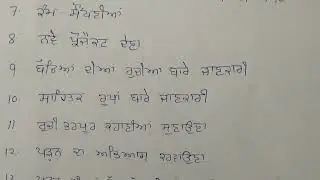 7. ਕੰਮ ਸੌਂਪਣੀਆਂ
8 ਨਵੇਂ ਪ੍ਰੋਜੈਕਟ ਦੇਣਾ
9 ਬੱਚਿਆਂ ਦੀਆਂ ਰੁਚੀਆਂ ਬਾਰੇ ਜਾਣਕਾਰੀ
10. ਸਾਹਿਤਕ ਰੂਪਾਂ ਬਾਰੇ ਜਾਣਕਾਰੀ
11 ਰੁਚੀ ਭਰਪੂਰ ਕਹਾਣੀਆਂ ਸੁਣਾਉਣਾ
12. ਪੜ੍ਹਨ ਦਾ ਅਭਿਆਸ ਕਰਵਾਉਣਾ